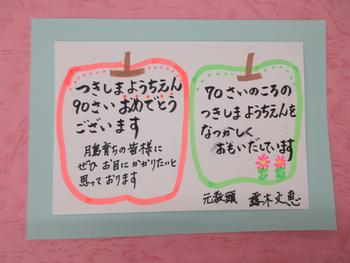 つきしまようちえん
90さいおめでとう
ございます
月島育ちの皆様に
ぜひお目にかかりたいと
思っております
70さいのころの
つきしまようちえんを
なつかしく
おもいだしています
元教頭 露木文恵